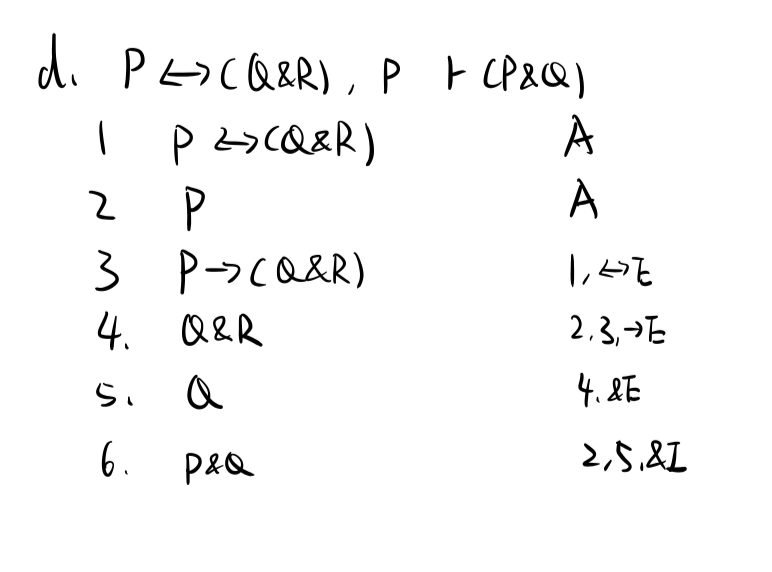 d. P ↔ (Q&R), P ⊢ (P&Q)
1 P ↔ (Q&R) A
2 P A
3 P → (Q&R) 1, ↔E
4. Q&R 2.3, →E
5. Q 4. &E
6. P&Q 2, 5, &I